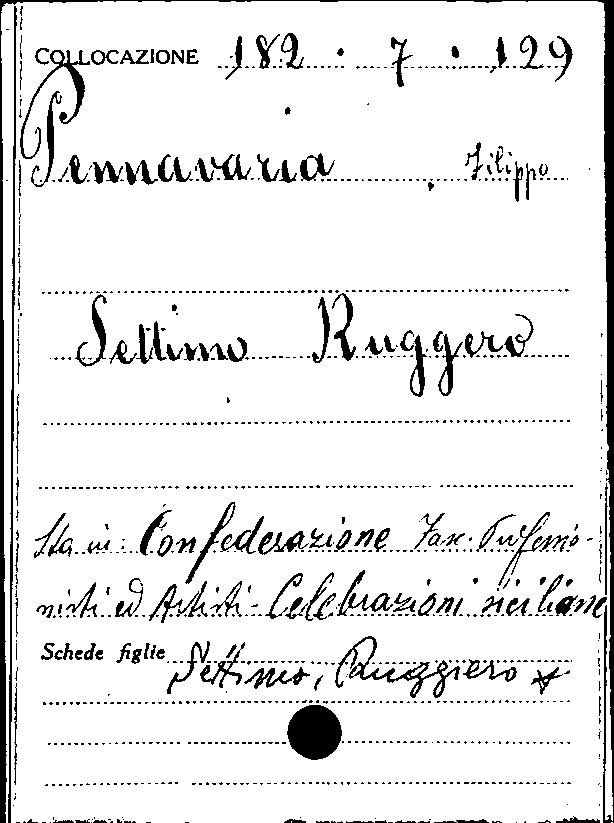 COLLOCAZIONE 182 · 7 · 129
Pennavaria Filippo
Settimo Ruggero
Sta in: Confederazione Fasc. Professio-
nisti ed Artisti - Celebrazioni siciliane
Schede figlie Settimo, Ruggiero